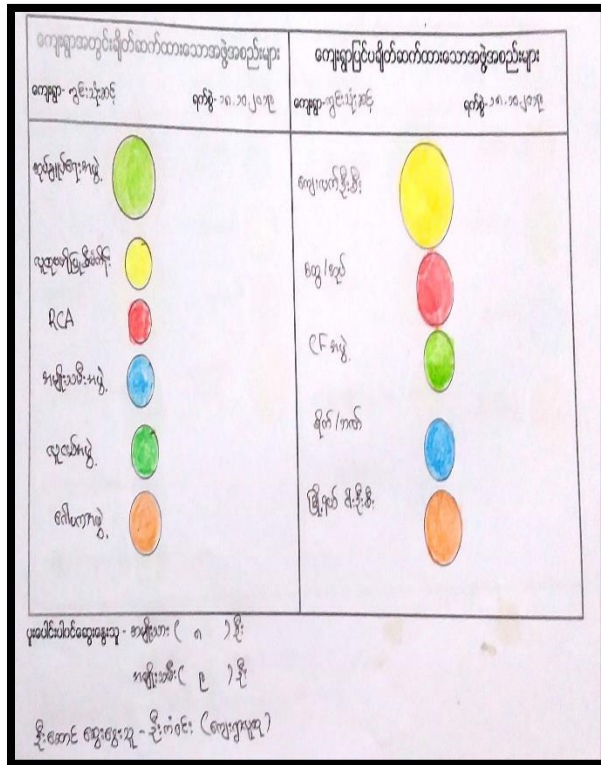 ကျေးရွာအတွင်းချိတ်ဆက်ထားသောအဖွဲ့အစည်းများ
ကျေးရွာ- ကွင်းသုံးဆင့်
ရက်စွဲ-၁၈.၁၀.၂၀၁၉
အုပ်ချုပ်ရေးအဖွဲ့
RCA
အမျိုးသမီးအဖွဲ့
လူငယ်အဖွဲ့
ဂေါပကအဖွဲ့
ကျေးရွာပြင်ပချိတ်ဆက်ထားသောအဖွဲ့အစည်းများ
ကျေးရွာ-ကွင်းသုံးဆင့်
ရက်စွဲ-၁၈.၁၀.၂၀၁၉
ကျေးလက်ဦးစီး
ထွေ/အုပ်
CF အဖွဲ့
စိုက်/ဘဏ်
မြို့နယ် ဦးစီး
ပူးပေါင်းပါဝင်ဆွေးနွေးသူ - အမျိုးသား ( ၈ ) ဦး
အမျိုးသမီး ( ၉ ) ဦး
ဦးဆောင် ဆွေးနွေးသူ - ဦးကံဝင်း (ကျေးရွာလူထု)